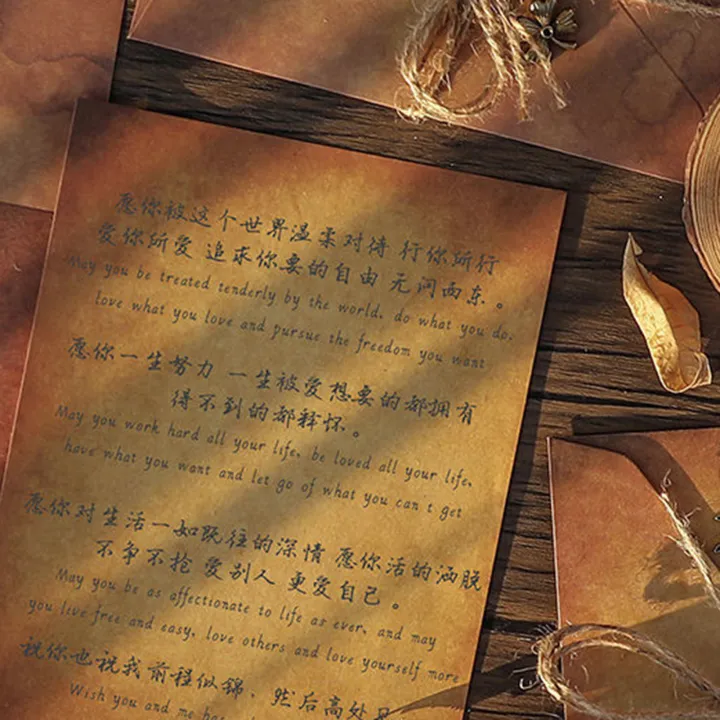 愿你被这个世界温柔对待 行你所行
爱你所爱 追求你要的自由 无问西东。
May you be treated tenderly by the world, do what you do,
love what you love and pursue the freedom you want
愿你一生努力 一生被爱 想要的都拥有
得不到的都释怀。
May you work hard all your life, be loved all your life,
have what you want and let go of what you can t get
愿你对生活一如既往的深情 愿你活的洒脱
不争不抢 爱别人 更爱自己。
May you be as affectionate to life as ever, and may
you live free and easy, love others and love yourself more
祝你也祝我前程似锦、然后高处见
Wish you and me